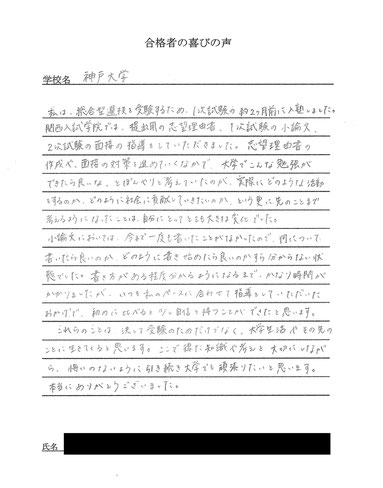 合格者の喜びの声
学校名 神戸大学
私は、総合型選抜を受験するため、1次試験の約2ヶ月前に入塾しました。
関西入試学院では、提出用の志望理由書、1次試験の小論文、
2次試験の面接の指導をしていただきました。志望理由書の
作成や、面接の対策を進めていくなかで、大学でこんな勉強が
できたら良いな、とぼんやりと考えていたのが、実際にどのような活動
をするのか、どのように社会に貢献していきたいか、という更に先のことまで
考えるようになったことは、自分にとってとても大きな変化でした。
小論文においては、今まで一度も書いたことがなかったので、何について
書いたら良いのか、どのように書き始めたら良いのかすら分からない状
態でした。書き方がある程度分かるようになるまで、かなり時間が
かかりましたが、いつも私のペースに合わせて指導をしていただいた
おかげで、初めに比べると少し自信を持つことができたと思います。
これらのことは、決して受験のためだけでなく、大学生活やその先の
ことに生きてくると思います。ここで得た知識や考えを大切にしなが
ら、悔いのないように引き続き大学でも頑張りたいと思います。
本当にありがとうございました。
氏名